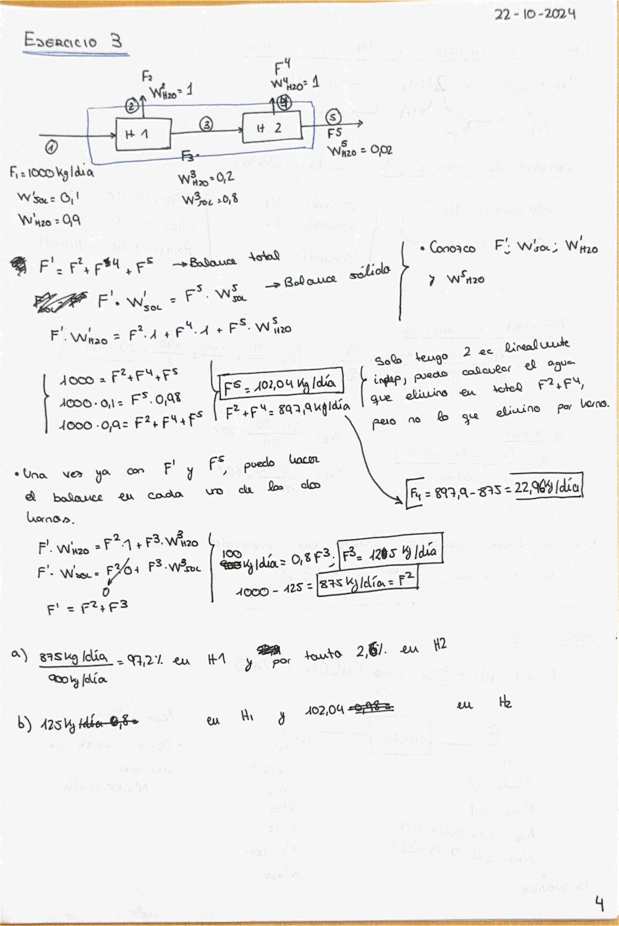 22-10-2024
EJERCICIO 3
F2 W²H2O = 1
F⁴ W⁴H2O = 1
② ④ ⑤
① H 1 ③ H 2 F5
W⁵H2O = 0,02
F1 = 1000 kg/dia
W¹SOL = 0,1
W¹H2O = 0,9
F3
W³H2O = 0,2
W³SOL = 0,8
F¹ = F² + F⁴ + F⁵ → Balance total
F¹ · W¹SOL = F⁵ · W⁵SOL → Balance sólido
F¹ · W¹H2O = F² · 1 + F⁴ · 1 + F⁵ · W⁵H2O
• Conozco F¹; W¹SOL; W¹H2O
y W⁵H2O
1000 = F² + F⁴ + F⁵
1000 · 0,1 = F⁵ · 0,98
1000 · 0,9 = F² + F⁴ + F⁵
F⁵ = 102,04 kg/día
F² + F⁴ = 897,9 kg/día
Solo tengo 2 ec linealmente
indep, puedo calcular el agua
que elimino en total F² + F⁴,
pero no lo que elimino por horno.
F4 = 897,9 - 875 = 22,96 kg/día
• Una vez ya con F¹ y F⁵, puedo hacer
el balance en cada uno de los dos
hornos.
F¹ · W¹H2O = F² · 1 + F³ · W³H2O
F¹ · W¹SOL = F² · 0 + F³ · W³SOL
0
F¹ = F² + F³
100 kg/día = 0,8 F³; F³ = 125 kg/día
1000 - 125 = 875 kg/día = F²
a) 875 kg/día / 900 kg/día = 97,2% en H1 y por tanto 2,6% en H2
b) 125 kg/día 0,8 = en H1 y 102,04 0,98 = en H2
4